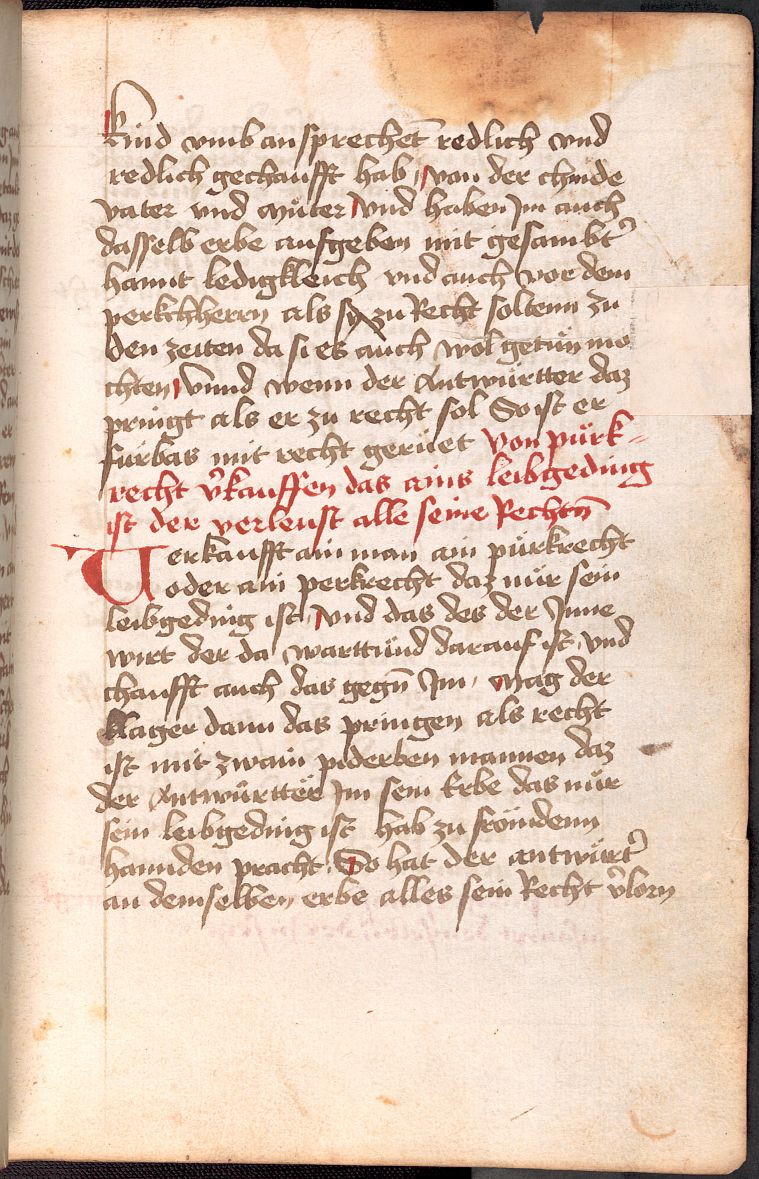 kind vmb ansprechet redlich vnd
redlich gechaufft hab, von der chinde
vater vnd muter vnd haben Im auch
dasselb erbe aufgeben mit gesambt̉
hannt ledigkleich vnd auch vor dem
perkchherrn als sy zu Recht soltenn zu
den zeiten da si es auch wol getun mo
chten, vnnd wenn der Antwurtter daz
pringt als er zu recht sol So ist er
furbas mit recht geruet Von purk=
recht v̉kauffen das ains leibgeding
ist der verleust alle seine Rechtn̄
Verkaufft ain man ain purkrecht
oder ain perkrecht daz nur sein
leibgeding ist, vnd das des der Inne
wirt der da warttund darauf ist, vnd
chaufft auch das gegn̄ Im, mag der
klager dann das pringen als recht
ist mit zwain piderben mannen daz
der Antwurtter Im sein Erbe das nur
sein leibgeding ist hab zu fromdenn
hannden pracht, So hat der antwurt̉
an demselben erbe alles sein Recht v̉lorn